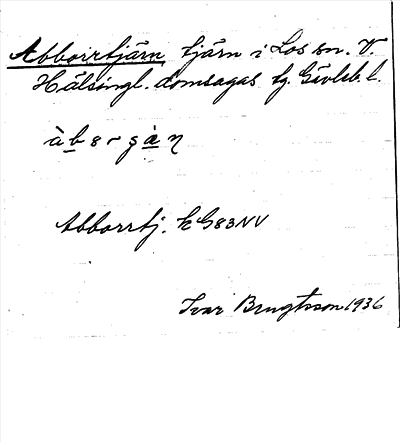 Abborrtjärn, tjärn i Los sn. V.
Hälsingl. domsagas tg. Gävleb. l.
Abborrtj. k G83NV
Ivar Bengtsson 1936